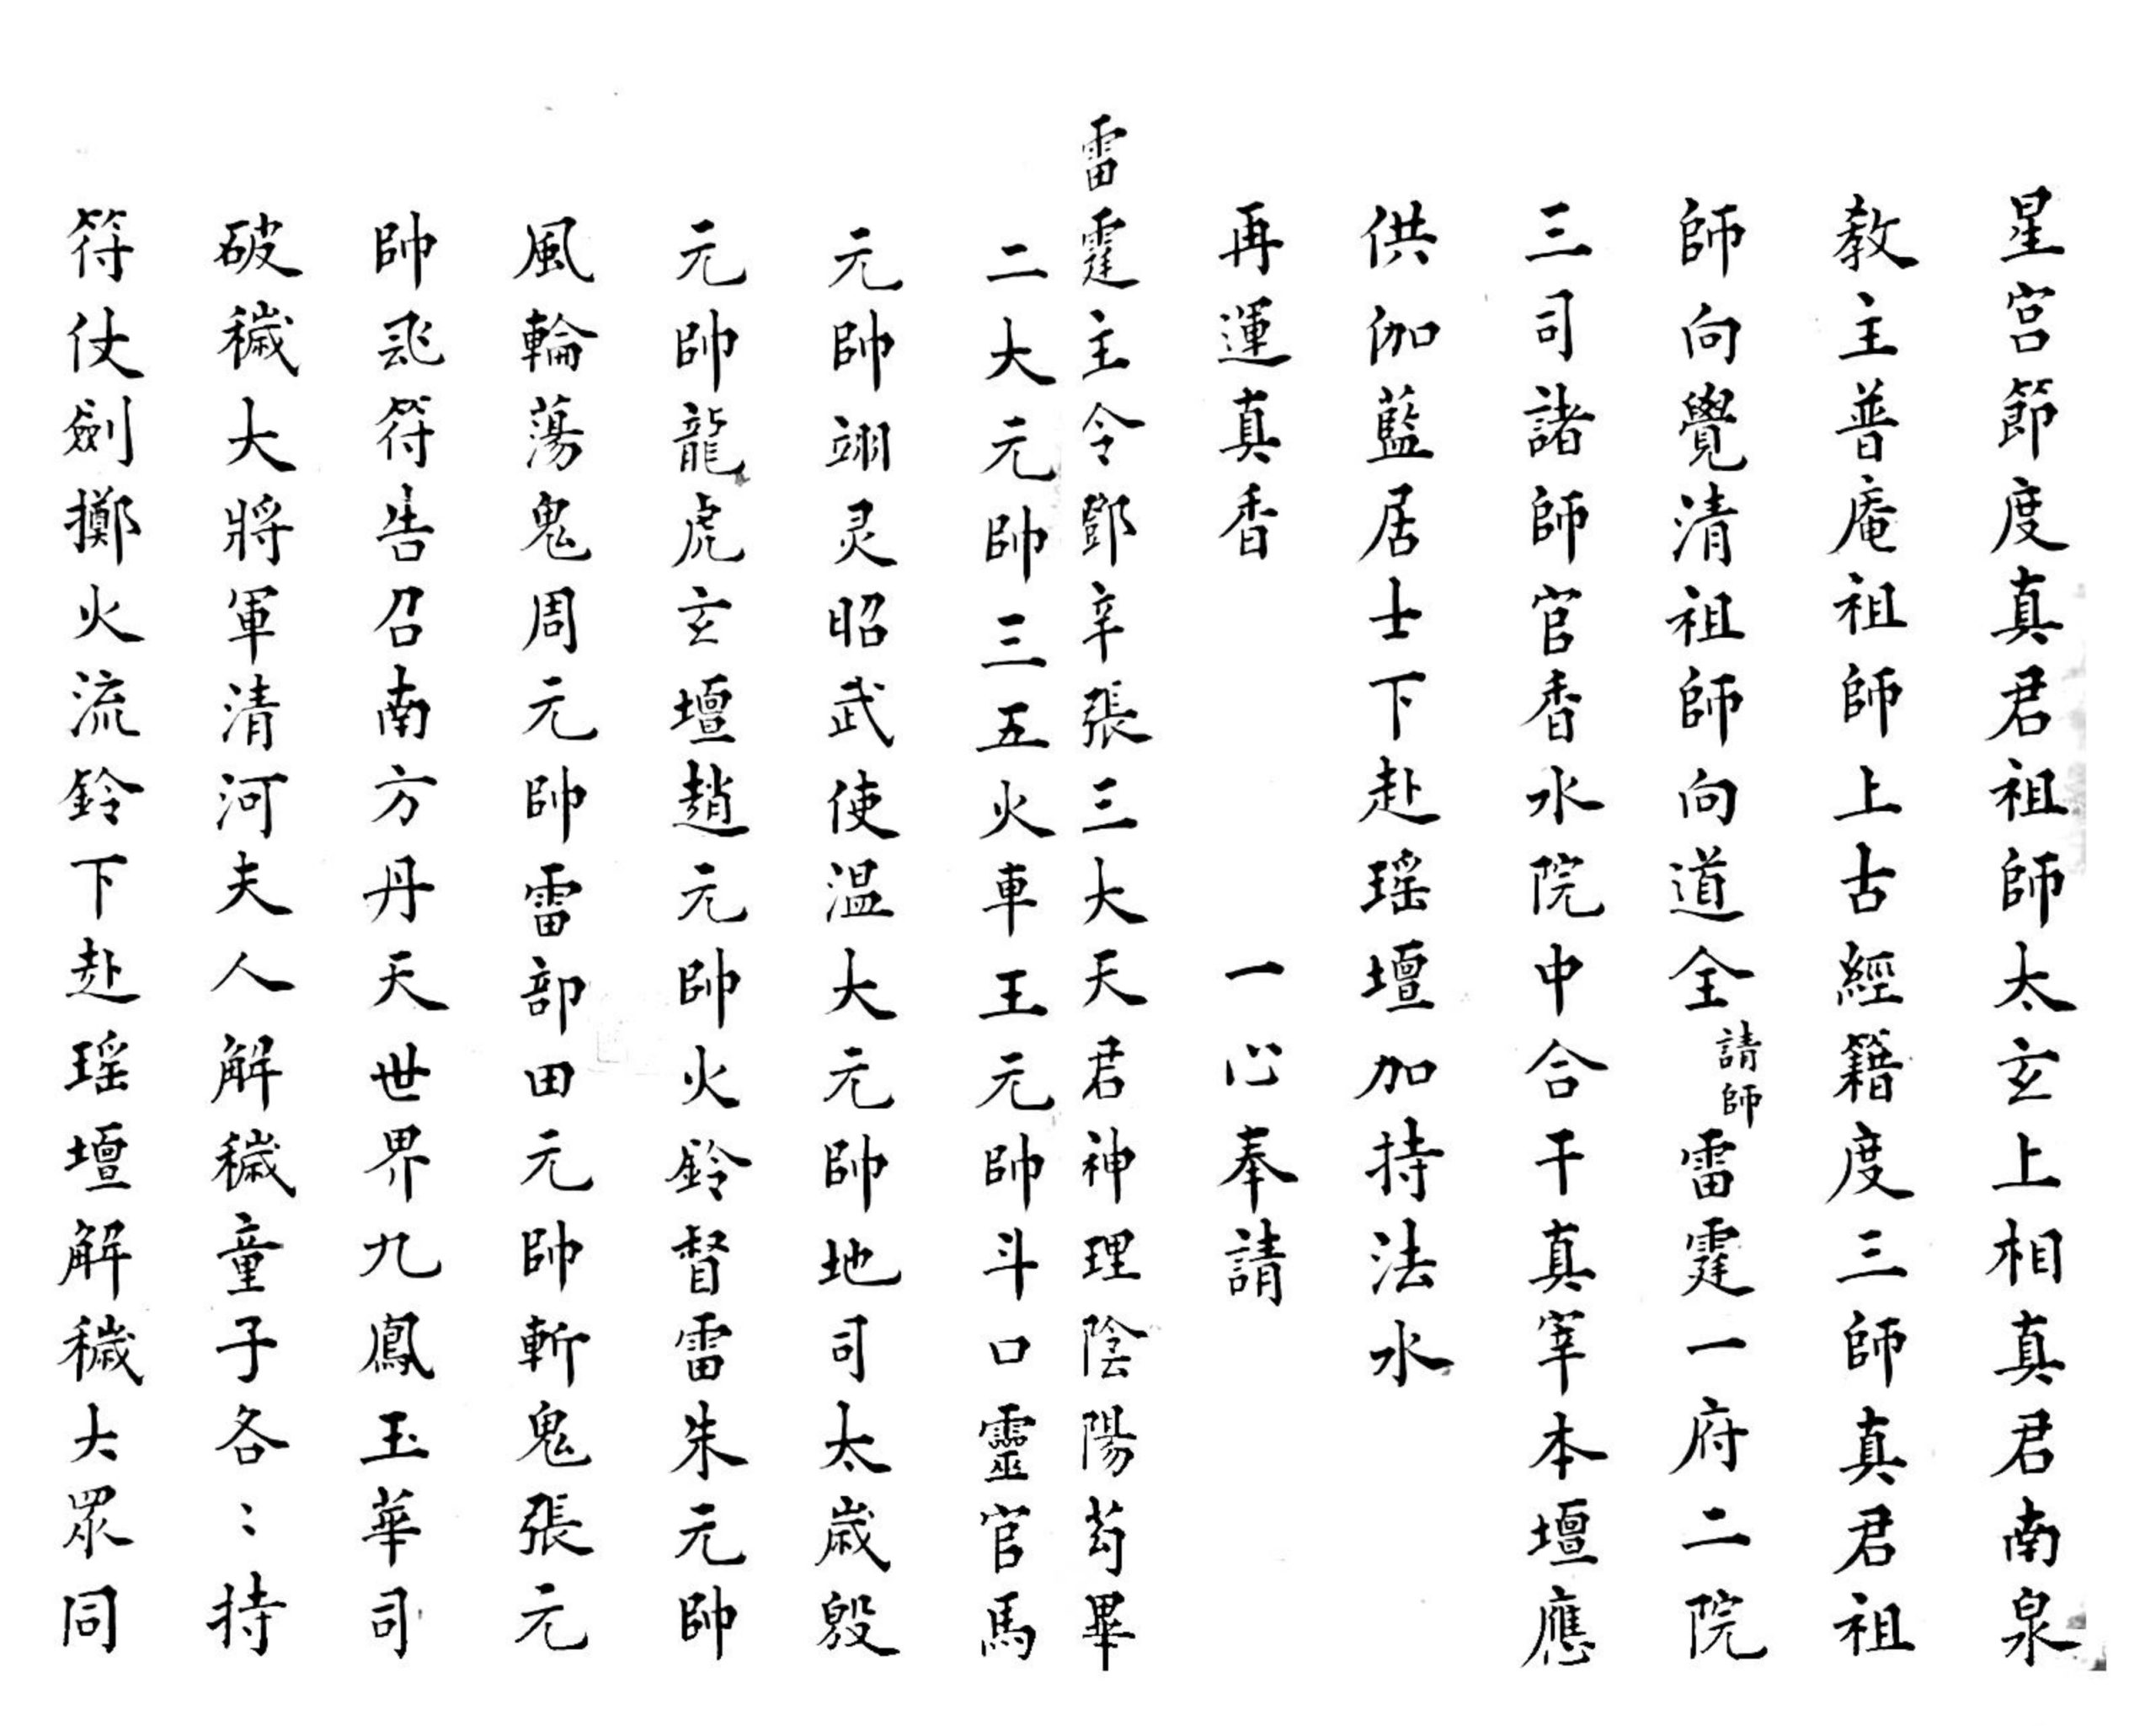 星宫節度真君祖師太玄上相真君南泉
教主普庵祖師上古經籍度三師真君祖
師向覺清祖師向道全請師雷霆一府二院
三司諸師官香水院中合干真宰本壇應
供伽藍居士下赴瑶壇加持法水
再運真香 一心奉請
雷霆主令鄧辛張三大天君神理陰陽芶畢
二大元帥三五火車王元帥斗口靈官馬
元帥翊灵昭武使温大元帥地司太歲殷
元帥龍虎玄壇趙元帥火鈴督雷朱元帥
風輪蕩鬼周元帥雷部田元帥斬鬼張元
帥飛符告召南方丹天世界九鳳玉華司
破穢大將軍清河夫人解穢童子各〻持
符仗劍擲火流鈴下赴瑶壇解穢大眾同